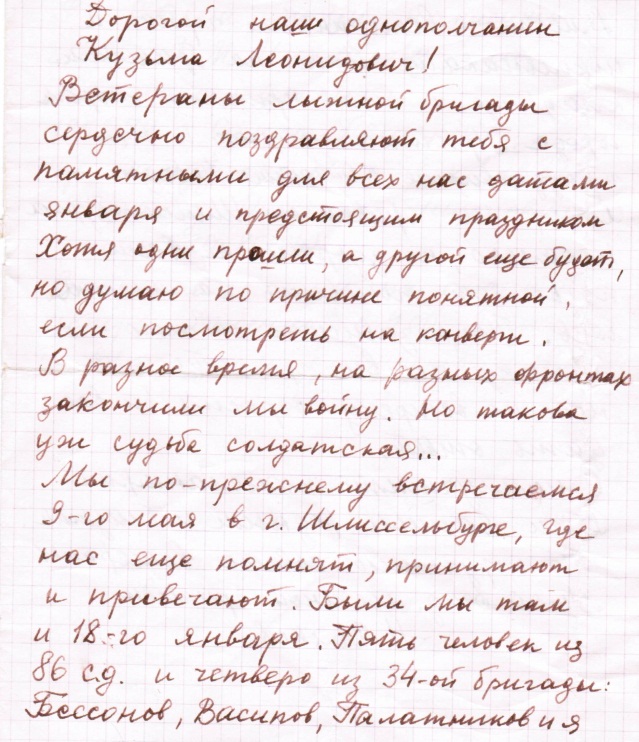 Дорогой наш однополчанин
Кузьма Леонидович!
Ветераны лыжной бригады
сердечно поздравляют тебя с
памятными для всех нас датами
января и предстоящим праздником
Хотя одни прошли, а другой еще будет,
но думаю по причине понятной,
если посмотреть на конверт.
В разное время, на разных фронтах
закончили мы войну. Но такова
уж судьба солдатская...
Мы по-прежнему встречаемся
9-го мая в г. Шлиссельбурге, где
нас еще помнят, принимают
и привечают. Были мы там
и 18-го января. Пять человек из
86 с.д. и четверо из 34-ой бригады:
Бессонов, Васипов, Палатников и я